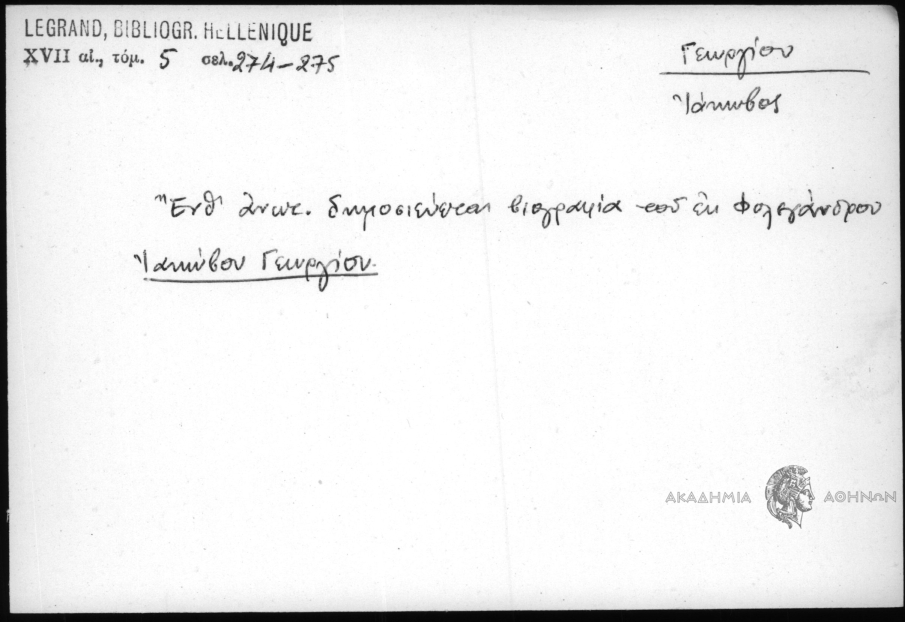 LEGRAND, BIBLIOGR. HELLENIQUE
XVII αἰ., τόμ. 5 σελ. 274-275
Γεωργίου
Ἰάκωβος
Ἔνθ' ἀνωτ. δημοσιεύεται βιογραφία τοῦ ἐκ Φολεγάνδρου
Ἰακώβου Γεωργίου.
ΑΚΑΔΗΜΙΑ ΑΘΗΝΩΝ